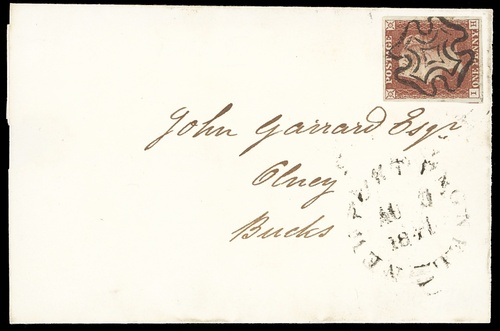 POSTAGE
ONE PENNY
H
I
John Garrard Esqr
Olney
Bucks
NEWPORT PAGNELL
AU
1841